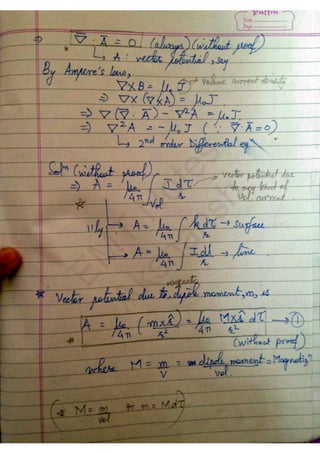 Pullin
Date
Page
⇒ ∇̄ · Ā = 0 (always) (without proof)
↳ A : vector potential, say
By Ampere's law,
∇×B = μ₀ J → volume current density
⇒ ∇×(∇×A) = μ₀J
⇒ ∇(∇·Ā) − ∇²A = μ₀J
⇒ ∇²A = −μ₀J (∵ ∇̄·Ā = 0)
↳ 2nd order Differential eqⁿ
Solⁿ (without proof)
⇒ A = μ₀/4π ∫vol J dτ/r → vector potential due to any kind of vol. current
lly → A = μ₀/4π ∫ k dτ/r → surface
→ A = μ₀/4π ∫ I dl/r → line
magnetic
* Vector potential due to dipole moment, m, is
A = μ₀/4π (m×r̂)/r² = μ₀/4π M×r̂/r² dτ → ①
(without proof)
where M = m/V = dipole moment/vol. = Magnetizⁿ
(* M = m/vol. or m = Mdτ)